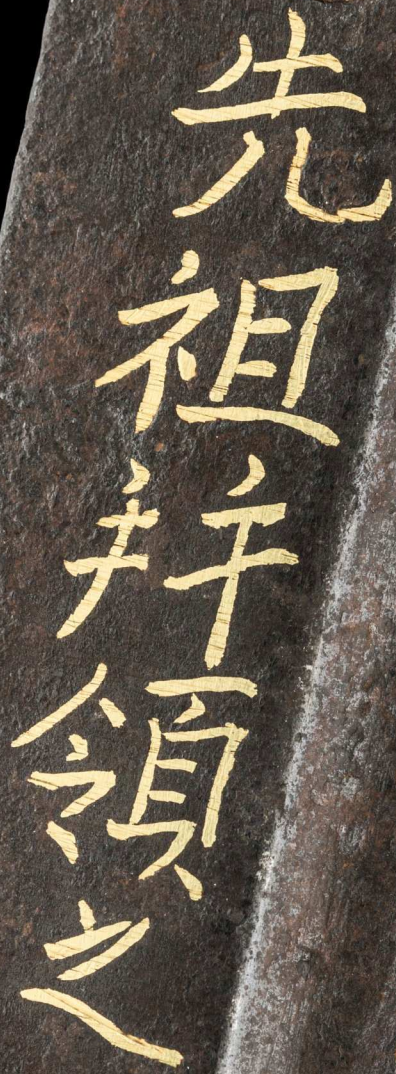 先祖拜領之